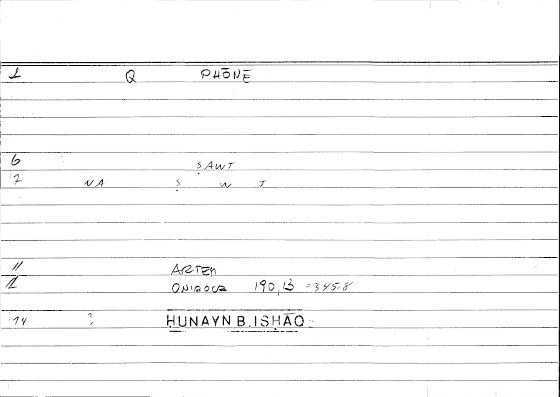 1 Q PHŌNĒ
6 ṢAWT
7 NA Ṣ W T
11 ARTEM
12 ONIROCR 190,13 =345.8
14 ? ḤUNAYN B. ISḤĀQ